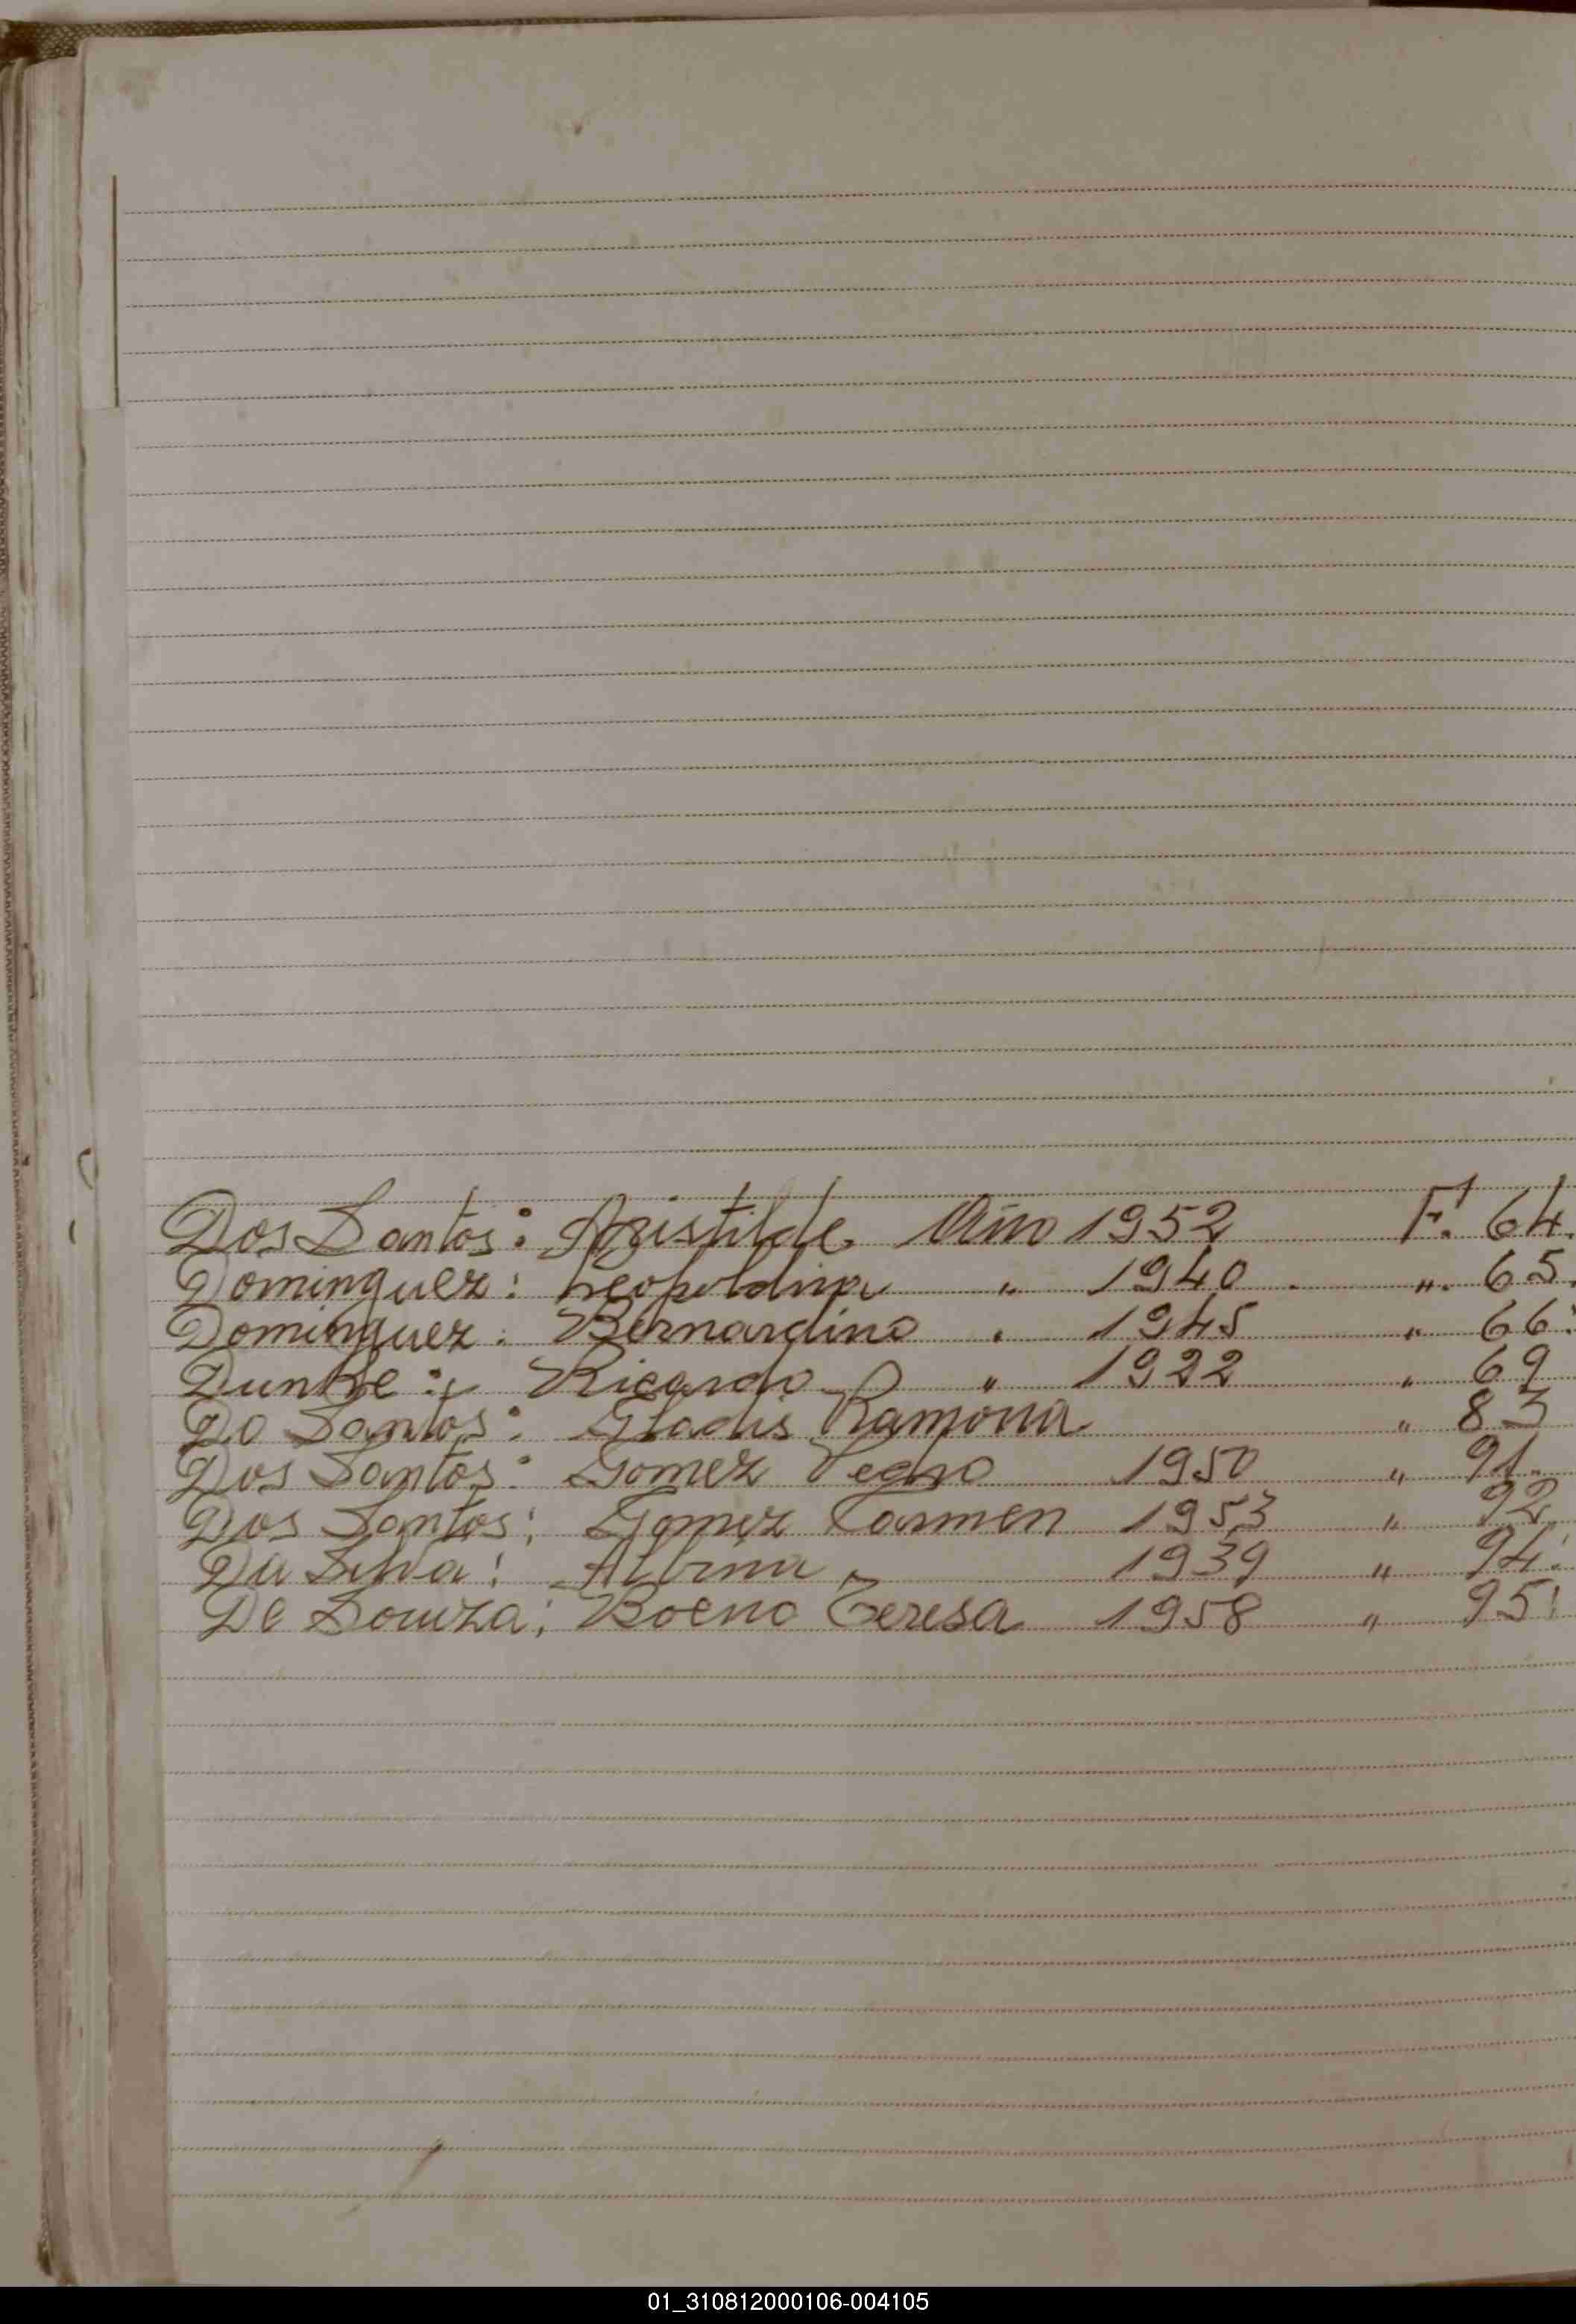 Dos Santos: Aristilde Año 1952 Fº 64.
Dominguez: Leopoldina " 1940 . " 65.
Dominguez: Bernardino " 1945 " 66:
Dunke: Ricardo " 1922 " 69
Do Santos: Gladis Ramona " 83
Dos Santos: Gomez Pedro 1950 " 91.
Dos Santos: Gomez Carmen 1953 " 92
Da Silva: Albina 1939 " 94.
De Souza: Boeno Teresa 1958 " 95:
01_310812000106-004105